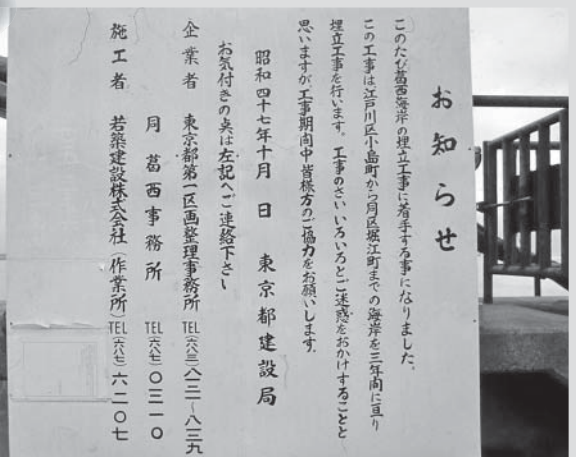 お知らせ
このたび葛西海岸の埋立工事に着手する事になりました。
この工事は江戸川区小島町から同区堀江町までの海岸を三年間に亘り
埋立工事を行います。工事のさいいろいろとご迷惑をおかけすることと
思いますが、工事期間中皆様方のご協力をお願いします。
昭和四十七年十月 日 東京都建設局
お気付きの点は左記へご連絡下さい
企業者 東京都第一区画整理事務所 TEL(六八三)八三一〜八三九
同 葛西事務所 TEL(六八七)〇三一〇
施工者 若築建設株式会社(作業所)TEL(六八七)六二〇七